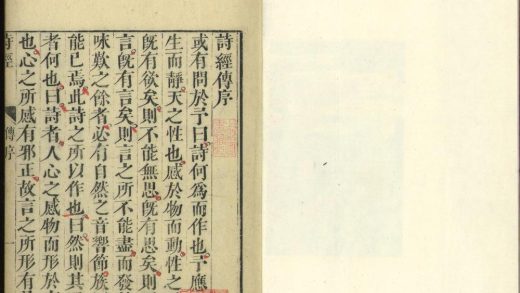 詩經傳序
或有問於予曰詩何爲而作也予應
生而靜天之性也感於物而動性之
既有欲矣則不能無思既有思矣則
言既有言矣則言之所不能盡而發
咏歎之餘者必有自然之音響節族
能已焉此詩之所以作也曰然則其
者何也曰詩者人心之感物而形於
也心之所感有邪正故言之所形有
詩經 傳序